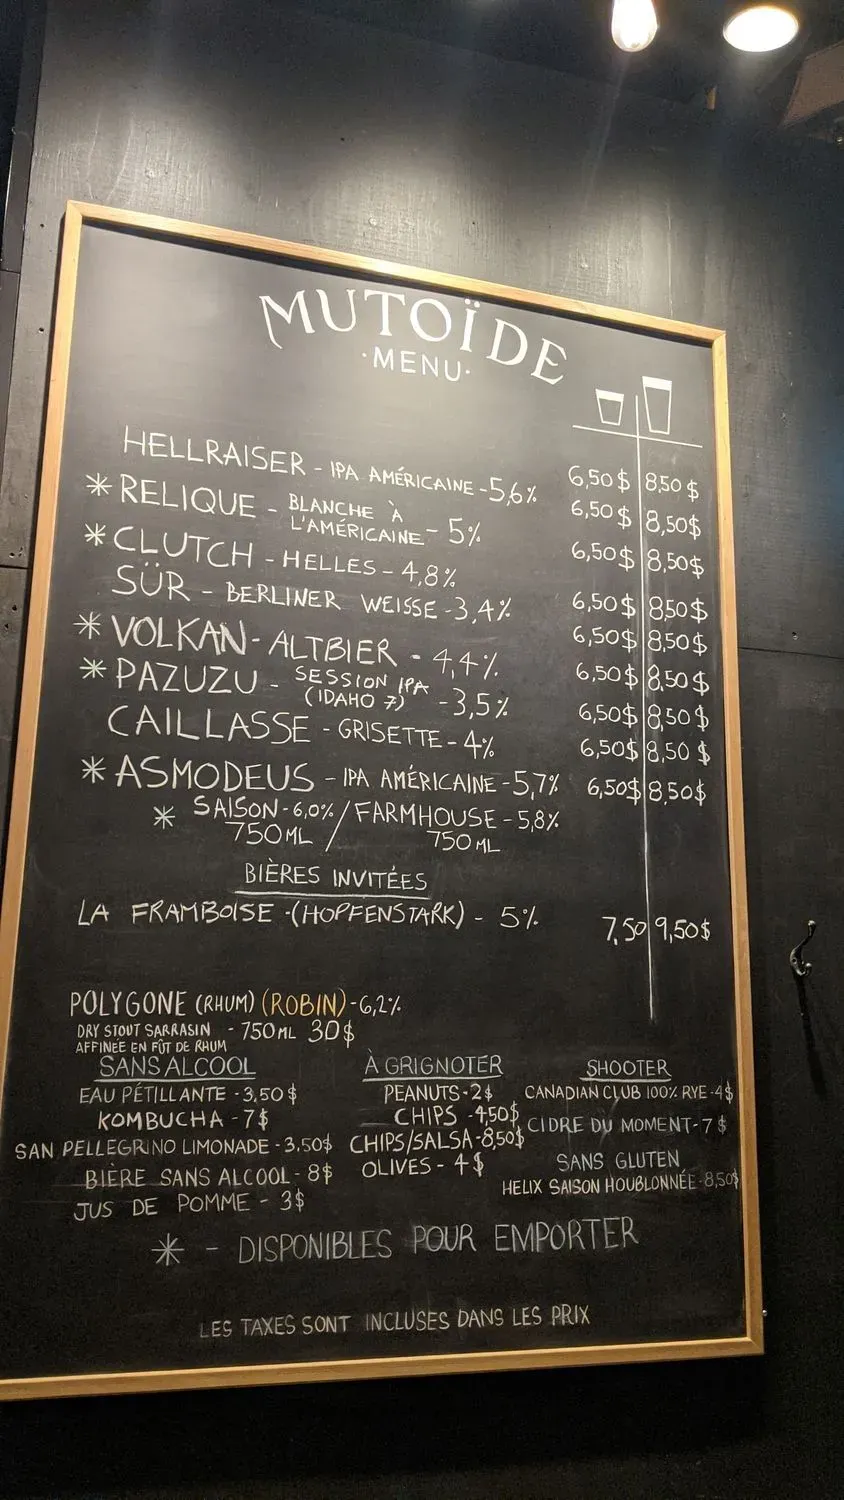 MUTOÏDE
·MENU·
HELLRAISER - IPA AMÉRICAINE - 5,6% 6,50$ 8,50$
* RELIQUE - BLANCHE À L'AMÉRICAINE - 5% 6,50$ 8,50$
* CLUTCH - HELLES - 4,8% 6,50$ 8,50$
SÜR - BERLINER WEISSE - 3,4% 6,50$ 8,50$
* VOLKAN - ALTBIER - 4,4% 6,50$ 8,50$
* PAZUZU - SESSION IPA (IDAHO 7) - 3,5% 6,50$ 8,50$
CAILLASSE - GRISETTE - 4% 6,50$ 8,50$
* ASMODEUS - IPA AMÉRICAINE - 5,7% 6,50$ 8,50 $
* SAISON - 6,0% / FARMHOUSE - 5,8% 6,50$ 8,50$
750ML / 750ML
BIÈRES INVITÉES
LA FRAMBOISE - (HOPFENSTARK) - 5% 7,50 9,50$
POLYGONE (RHUM) (ROBIN) - 6,2%
DRY STOUT SARRASIN - 750ML 30$
AFFINÉE EN FÛT DE RHUM
SANS ALCOOL
EAU PÉTILLANTE - 3,50$
KOMBUCHA - 7$
SAN PELLEGRINO LIMONADE - 3,50$
BIÈRE SANS ALCOOL - 8$
JUS DE POMME - 3$
À GRIGNOTER
PEANUTS - 2$
CHIPS - 4,50$
CHIPS/SALSA - 8,50$
OLIVES - 4$
SHOOTER
CANADIAN CLUB 100% RYE - 4$
CIDRE DU MOMENT - 7$
SANS GLUTEN
HELIX SAISON HOUBLONNÉE - 8,50$
* - DISPONIBLES POUR EMPORTER
LES TAXES SONT INCLUSES DANS LES PRIX